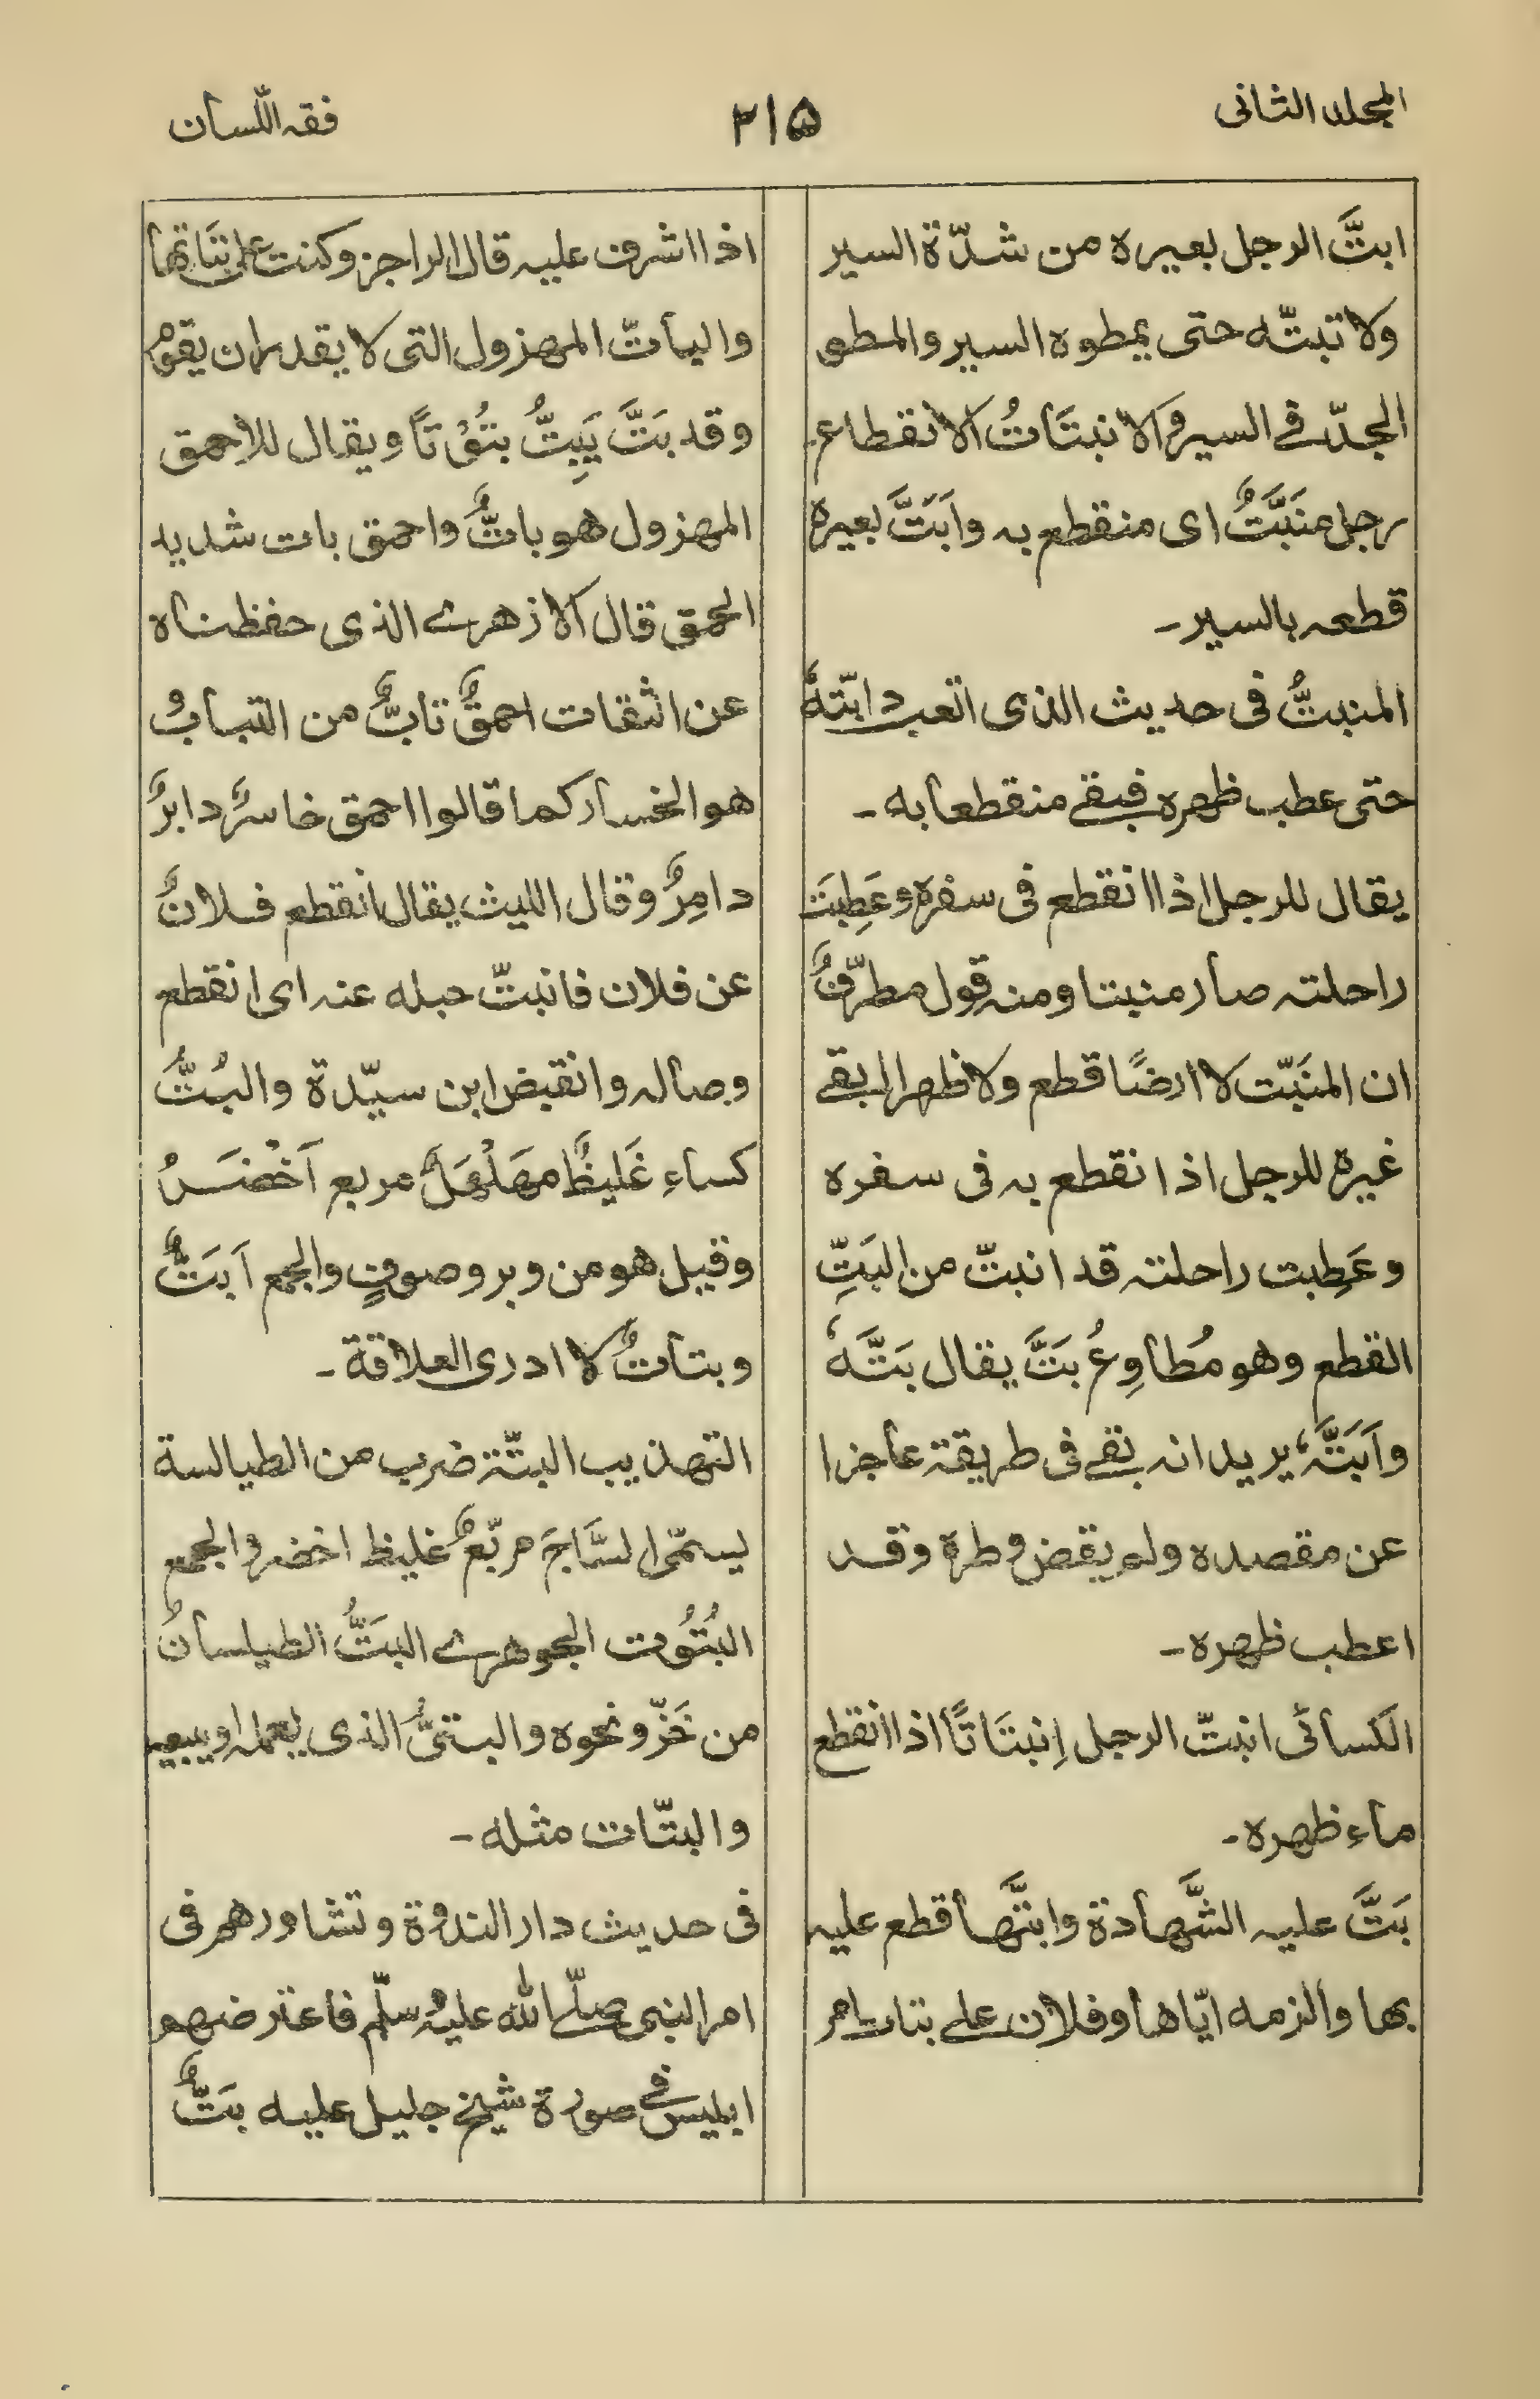 المجلد الثانى
۲۱۵
فقہ اللّسان
ابتَّ الرجل بعیرہ من شدّۃ السیر
ولا تبتّہ حتی یمطوہ السیر والمطو
الجدّ فے السیر والانبتَاتُ الانقطاع
رجل منبَتٌّ ای منقطع بہ وأبَتَّ بعیرہ
قطعہ بالسیر۔
المنبتُّ فی حدیث الذی اتعب دابّتہٗ
حتی عطب ظھرہ فبقے منقطعا بہ۔
یقال للرجل اذا انقطع فی سفرہ وعَطِبَت
راحلتہ صار منبتا ومنہ قول مطرّفٌ
ان المنبَتّ لا ارضًا قطع ولا ظھرا ابقے
غیرہ للرجل اذا انقطع بہ فی سفرہ
وعَطِبت راحلتہ قد انبتّ من البَتِّ
القطع وھو مُطاوِعُ بَتَّ یقال بَتَّہٗ
وأبَتَّہٗ یرید انہ بقے فی طریقۃ عاجزا
عن مقصدہ ولم یقض وطرہ وقد
اعطب ظھرہ۔
الکسائی انبتّ الرجل اِنبتَاتًا اذا انقطع
ماء ظھرہ۔
بَتَّ علیہ الشَّھادۃ وابتَّھا قطع علیہ
بھا والزمہ ایّاھا وفلان علے بتات امر
اذا اشرف علیہ قال الراجز وکنت علی بتَاتھا
والباتّ المھزول التی لا یقدر ان یقوم
وقد بَتَّ یَبِتُّ بتُوتًا ویقال للاحمق
المھزول ھو باتٌّ واحمق بات شدید
الحمق قال الازھرے الذی حفظناہ
عن الثقات احمقٌ تابٌّ من التبابُ
ھو الخسار کما قالوا احمق خاسرٌ دابرٌ
دامِرٌ وقال اللیث یقال انقطع فلانٌ
عن فلان فانبتّ حبلہ عنہ ای انقطع
وصالہ وانقبض ابن سیّدۃ والبُتُّ
کساءِ غَلیظٌ مھَلْھَلٌ مربع اَخْضَرُ
وقیل ھو من وبر وصوفٍ والجمع اَبَتٌّ
وبتاتٌ لا ادری العلاقۃ۔
التھذیب البتّۃ ضرب من الطیالسۃ
یسمّی السَّاجَ مربّعٌ غلیظ اخضر والجمع
البُتُوت الجوھرے البَتُّ الطیلسانُ
من خَزّ ونحوہ والبتیُّ الذی یعملہ او یبیعہ
والبتّات مثلہ۔
فی حدیث دار الندوۃ وتشاورھم فی
امر النبی صلّے اللہ علیہ وسلّم فاعترضھم
ابلیس فے صورۃ شیخ جلیل علیہ بَتٌّ